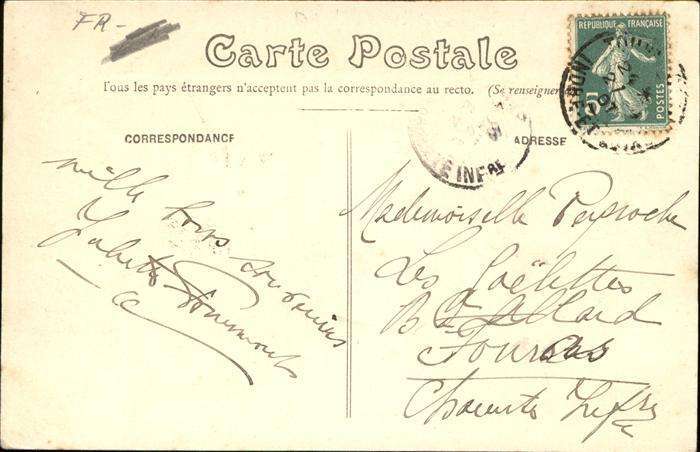 FR-
Carte Postale
Tous les pays étrangers n'acceptent pas la correspondance au recto. (Se renseigner
RÉPUBLIQUE FRANÇAISE
CORRESPONDANCE
ADRESSE
E INFRE
mille bons souvenirs
Juliette
Mademoiselle Peyroche
Les Goëlettes
Bd Allard
Fouras
Charente Infre